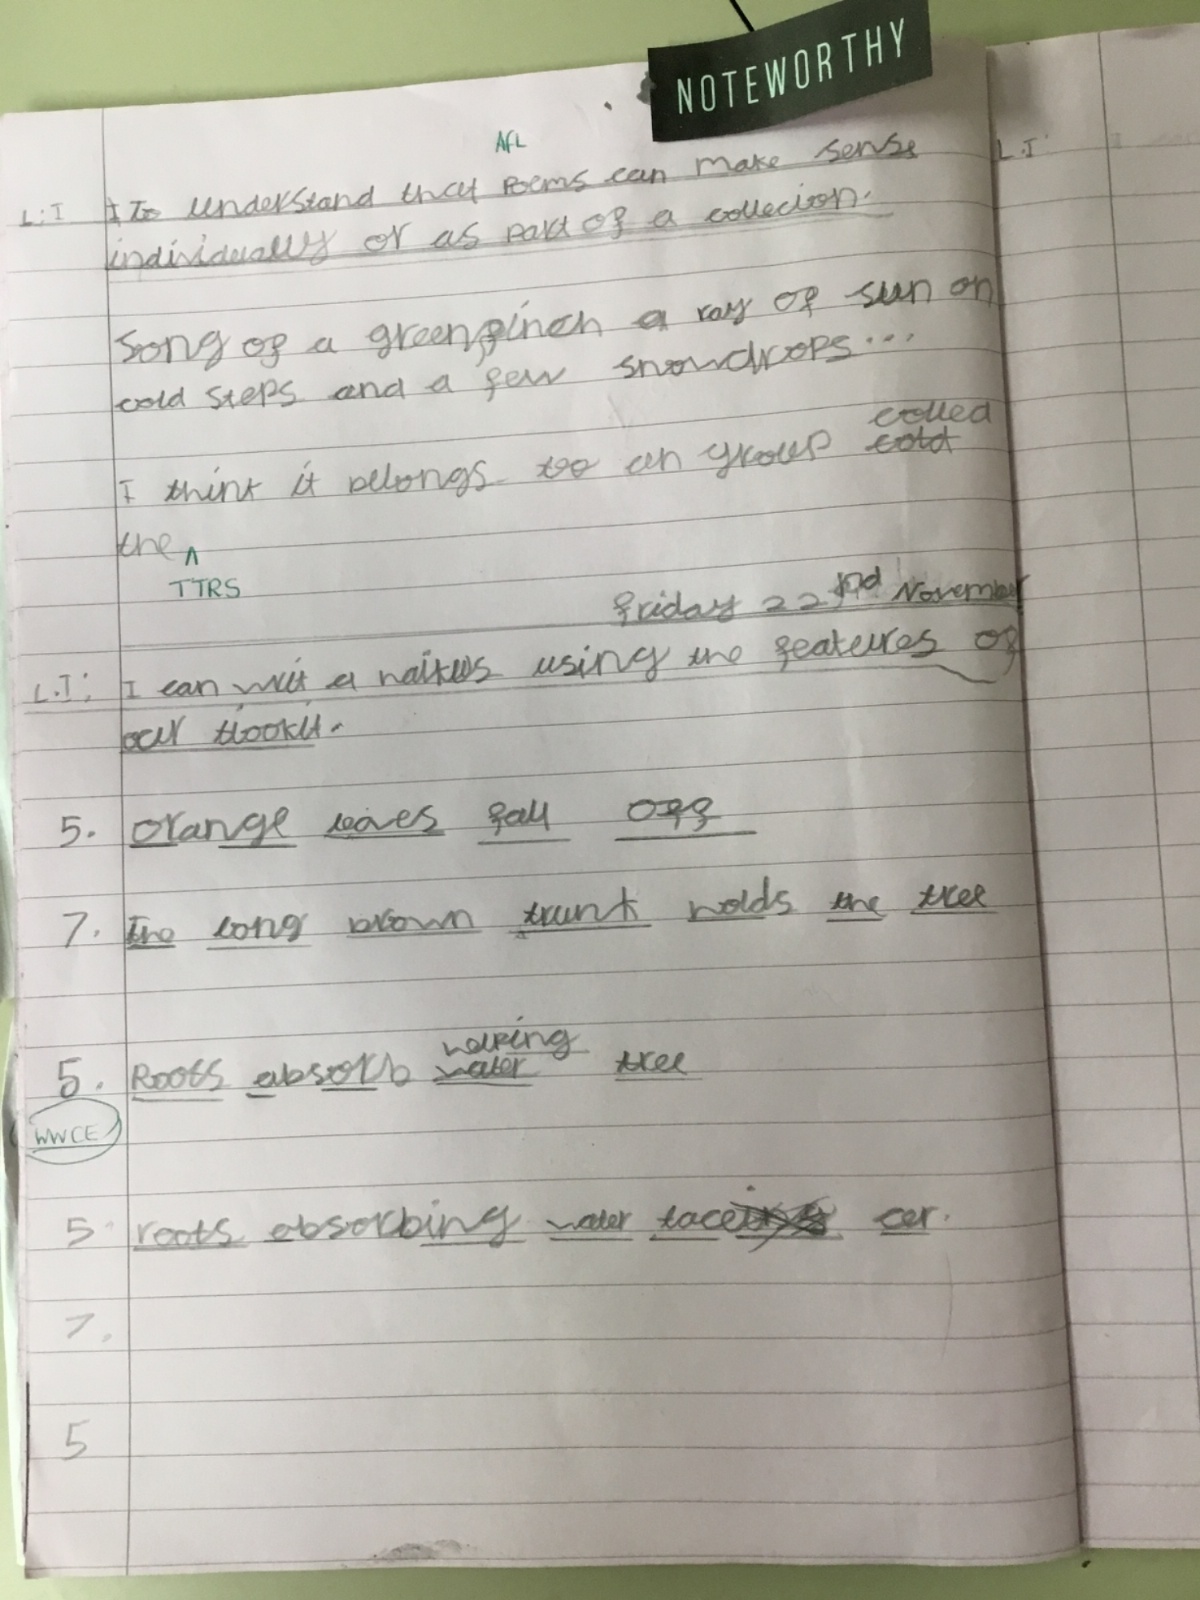 NOTEWORTHY
AFL
L.I I To understand that Poems can make sense
individually or as part of a collecion.
L.I
Song of a greenfinch a ray of sun on
cold steps and a few snowdrops...
I think it belongs too an group colled cold
the ^
TTRS
friday 22nd November
L.I: I can writ a haikus using the features of
our tlookit.
5. Orange leaves fall off
7. The long brown trunk holds the tree
helping
5. Roots absorb water tree
WWCE
5 roots absorbing water car.
7.
5